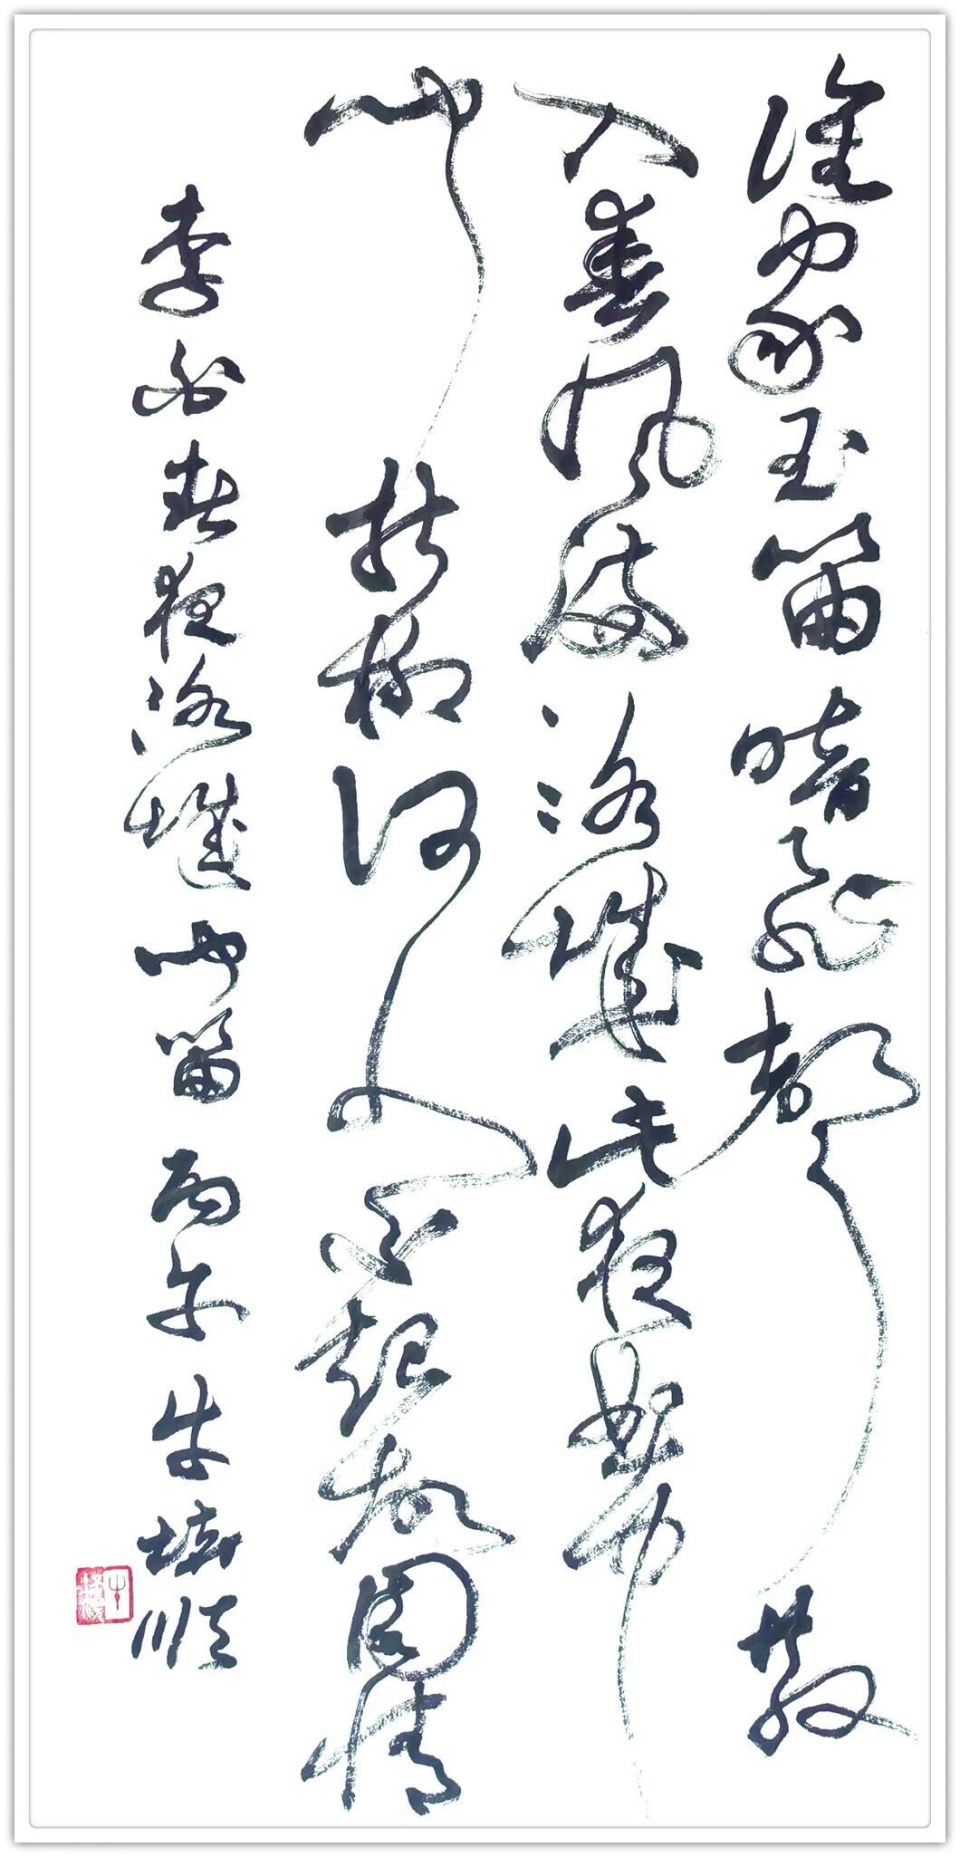 谁家玉笛暗飞声散
入春风满洛城此夜曲中
闻折柳何人不起故园情
李白春夜洛城闻笛 丙午 牛 顺